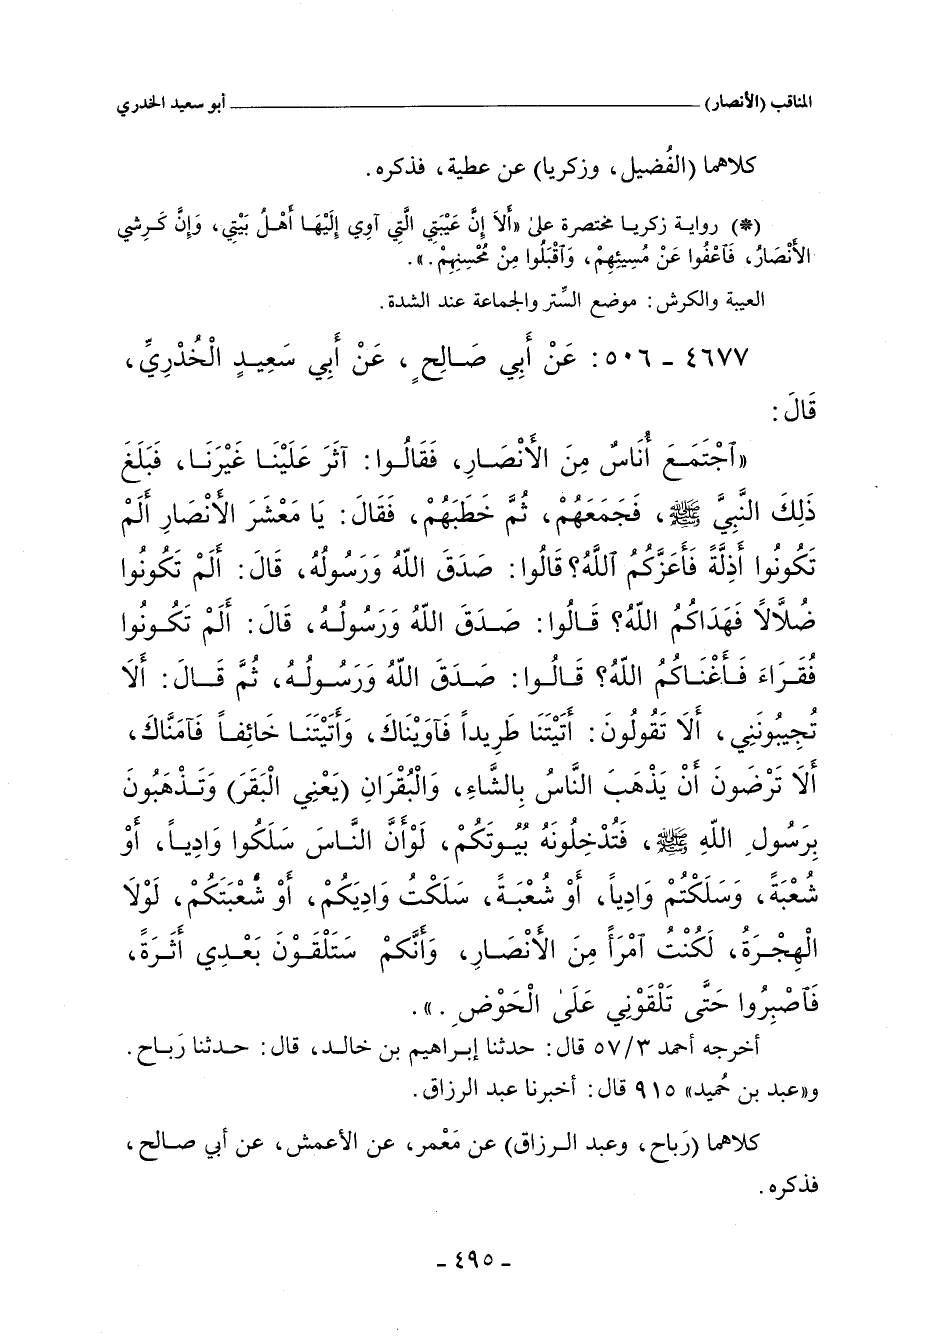 المناقب (الأنصار) ــــــــــــــــــــ أبو سعيد الخدري
كلاهما (الفُضيل، وزكريا) عن عطية، فذكره.
(*) رواية زكريا مختصرة على «أَلاَ إِنَّ عَيْبَتِي الَّتِي آوِي إِلَيْهَا أَهْلُ بَيْتِي، وَإِنَّ كَرِشِي
الأَنْصَارُ، فَاعْفُوا عَنْ مُسِيئِهِمْ، وَاقْبَلُوا مِنْ مُحْسِنِهِمْ.».
العيبة والكرش: موضع السِّتر والجماعة عند الشدة.
٤٦٧٧ - ٥٠٦: عَنْ أَبِي صَالِحٍ، عَنْ أَبِي سَعِيدٍ الْخُدْرِيِّ،
قَالَ:
«ٱجْتَمَعَ أُنَاسٌ مِنَ الأَنْصَارِ، فَقَالُوا: آثَرَ عَلَيْنَا غَيْرَنَا، فَبَلَغَ
ذَلِكَ النَّبِيَّ ﷺ، فَجَمَعَهُمْ، ثُمَّ خَطَبَهُمْ، فَقَالَ: يَا مَعْشَرَ الأَنْصَارِ أَلَمْ
تَكُونُوا أَذِلَّةً فَأَعَزَّكُمُ ٱللَّهُ؟ قَالُوا: صَدَقَ اللّهُ وَرَسُولُهُ، قَالَ: أَلَمْ تَكُونُوا
ضُلاَّلاً فَهَدَاكُمُ اللّهُ؟ قَالُوا: صَدَقَ اللّهُ وَرَسُولُهُ، قَالَ: أَلَمْ تَكُونُوا
فُقَرَاءَ فَأَغْنَاكُمُ اللّهُ؟ قَالُوا: صَدَقَ اللّهُ وَرَسُولُهُ، ثُمَّ قَالَ: أَلاَ
تُجِيبُونَنِي، أَلاَ تَقُولُونَ: أَتَيْتَنَا طَرِيداً فَآوَيْنَاكَ، وَأَتَيْتَنَا خَائِفاً فَآمَنَّاكَ،
أَلاَ تَرْضَوْنَ أَنْ يَذْهَبَ النَّاسُ بِالشَّاءِ، وَالْبُقْرَانِ (يَعْنِي الْبَقَرَ) وَتَذْهَبُونَ
بِرَسُولِ اللّهِ ﷺ، فَتُدْخِلُونَهُ بُيُوتَكُمْ، لَوْ أَنَّ النَّاسَ سَلَكُوا وَادِياً، أَوْ
شُعْبَةً، وَسَلَكْتُمْ وَادِياً، أَوْ شُعْبَةً، سَلَكْتُ وَادِيَكُمْ، أَوْ شُعْبَتَكُمْ، لَوْلاَ
الْهِجْرَةُ، لَكُنْتُ ٱمْرَأً مِنَ الأَنْصَارِ، وَأَنَّكُمْ سَتَلْقَوْنَ بَعْدِي أَثَرَةً،
فَٱصْبِرُوا حَتَّى تَلْقَوْنِي عَلَى الْحَوْضِ.».
أخرجه أحمد ٥٧/٣ قال: حدثنا إبراهيم بن خالد، قال: حدثنا رَباح.
و«عبد بن حُميد» ٩١٥ قال: أخبرنا عبد الرزاق.
كلاهما (رَباح، وعبد الرزاق) عن مَعْمر، عن الأعمش، عن أبي صالح،
فذكره.
- ٤٩٥ -